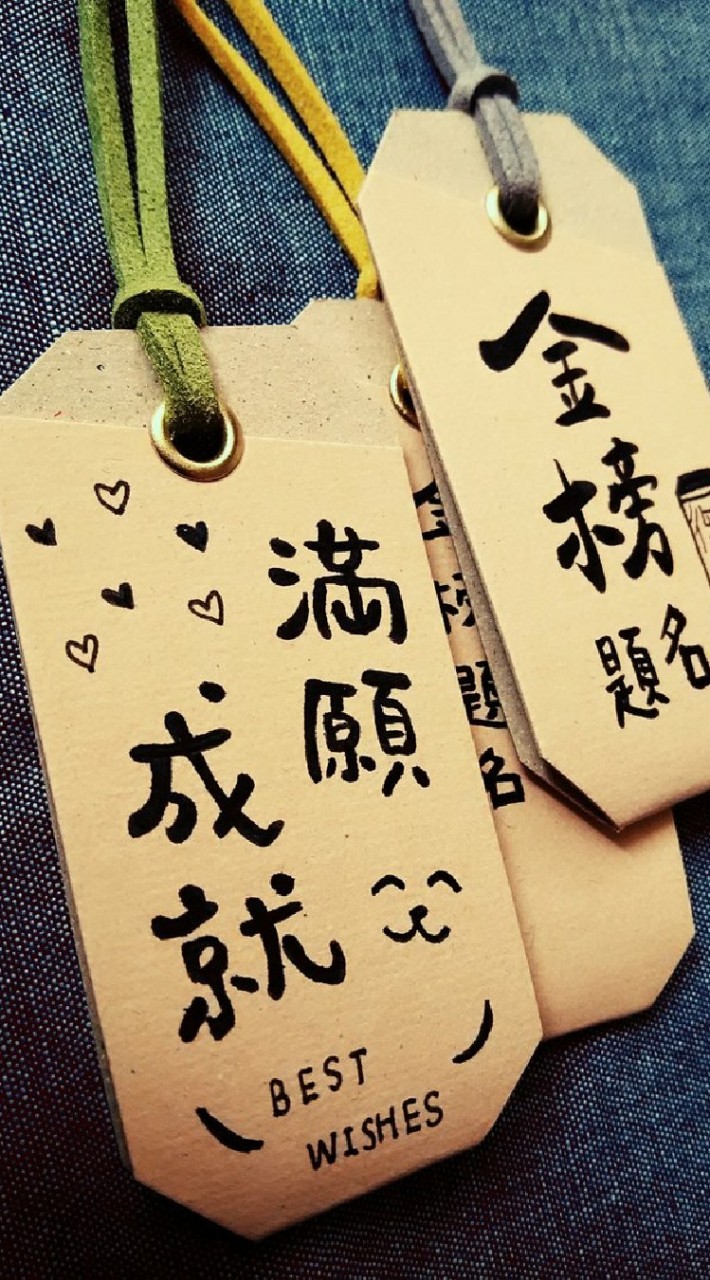 滿願
成就
BEST
WISHES
金榜
題名
金榜題名